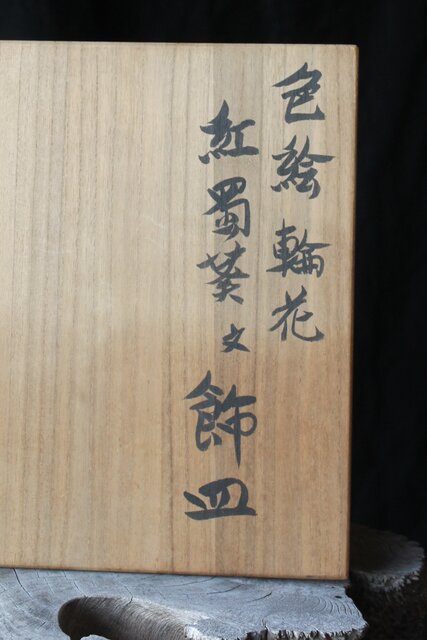 色絵輪花
紅蜀葵文飾皿